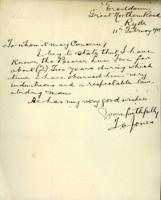 "Ersildoune"
Great Northern Road
Ryde
11th February 1911
To whom it may Concern/
I beg to state that I have
Known the Bearer for
about (2) Two years during which
time I have observed him very
industrious and a respectable law
abiding man
He has my very good wishes
Yours faithfully
Jones